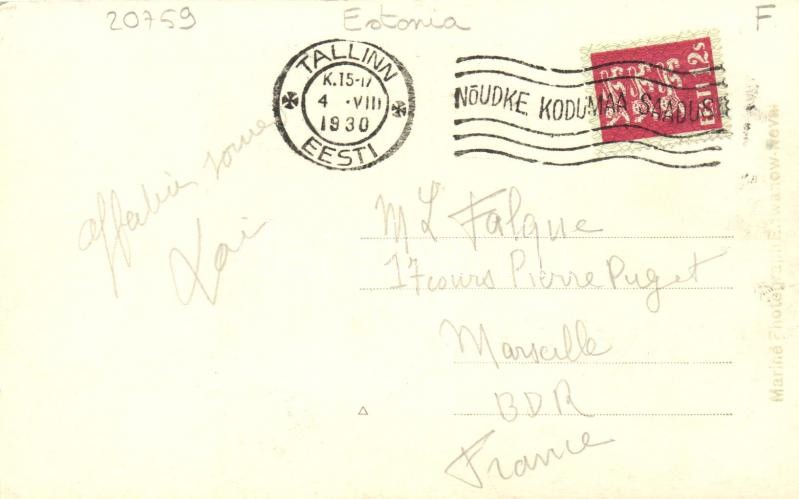 20759 Estonia F
TALLINN
K.15-17
4 .VIII
1930
EESTI
NÕUDKE KODUMAA SAADUSI
EESTI 12s
M L Falque
17 cours Pierre Puget
Marseille
BDR
France
Marine Photogr.